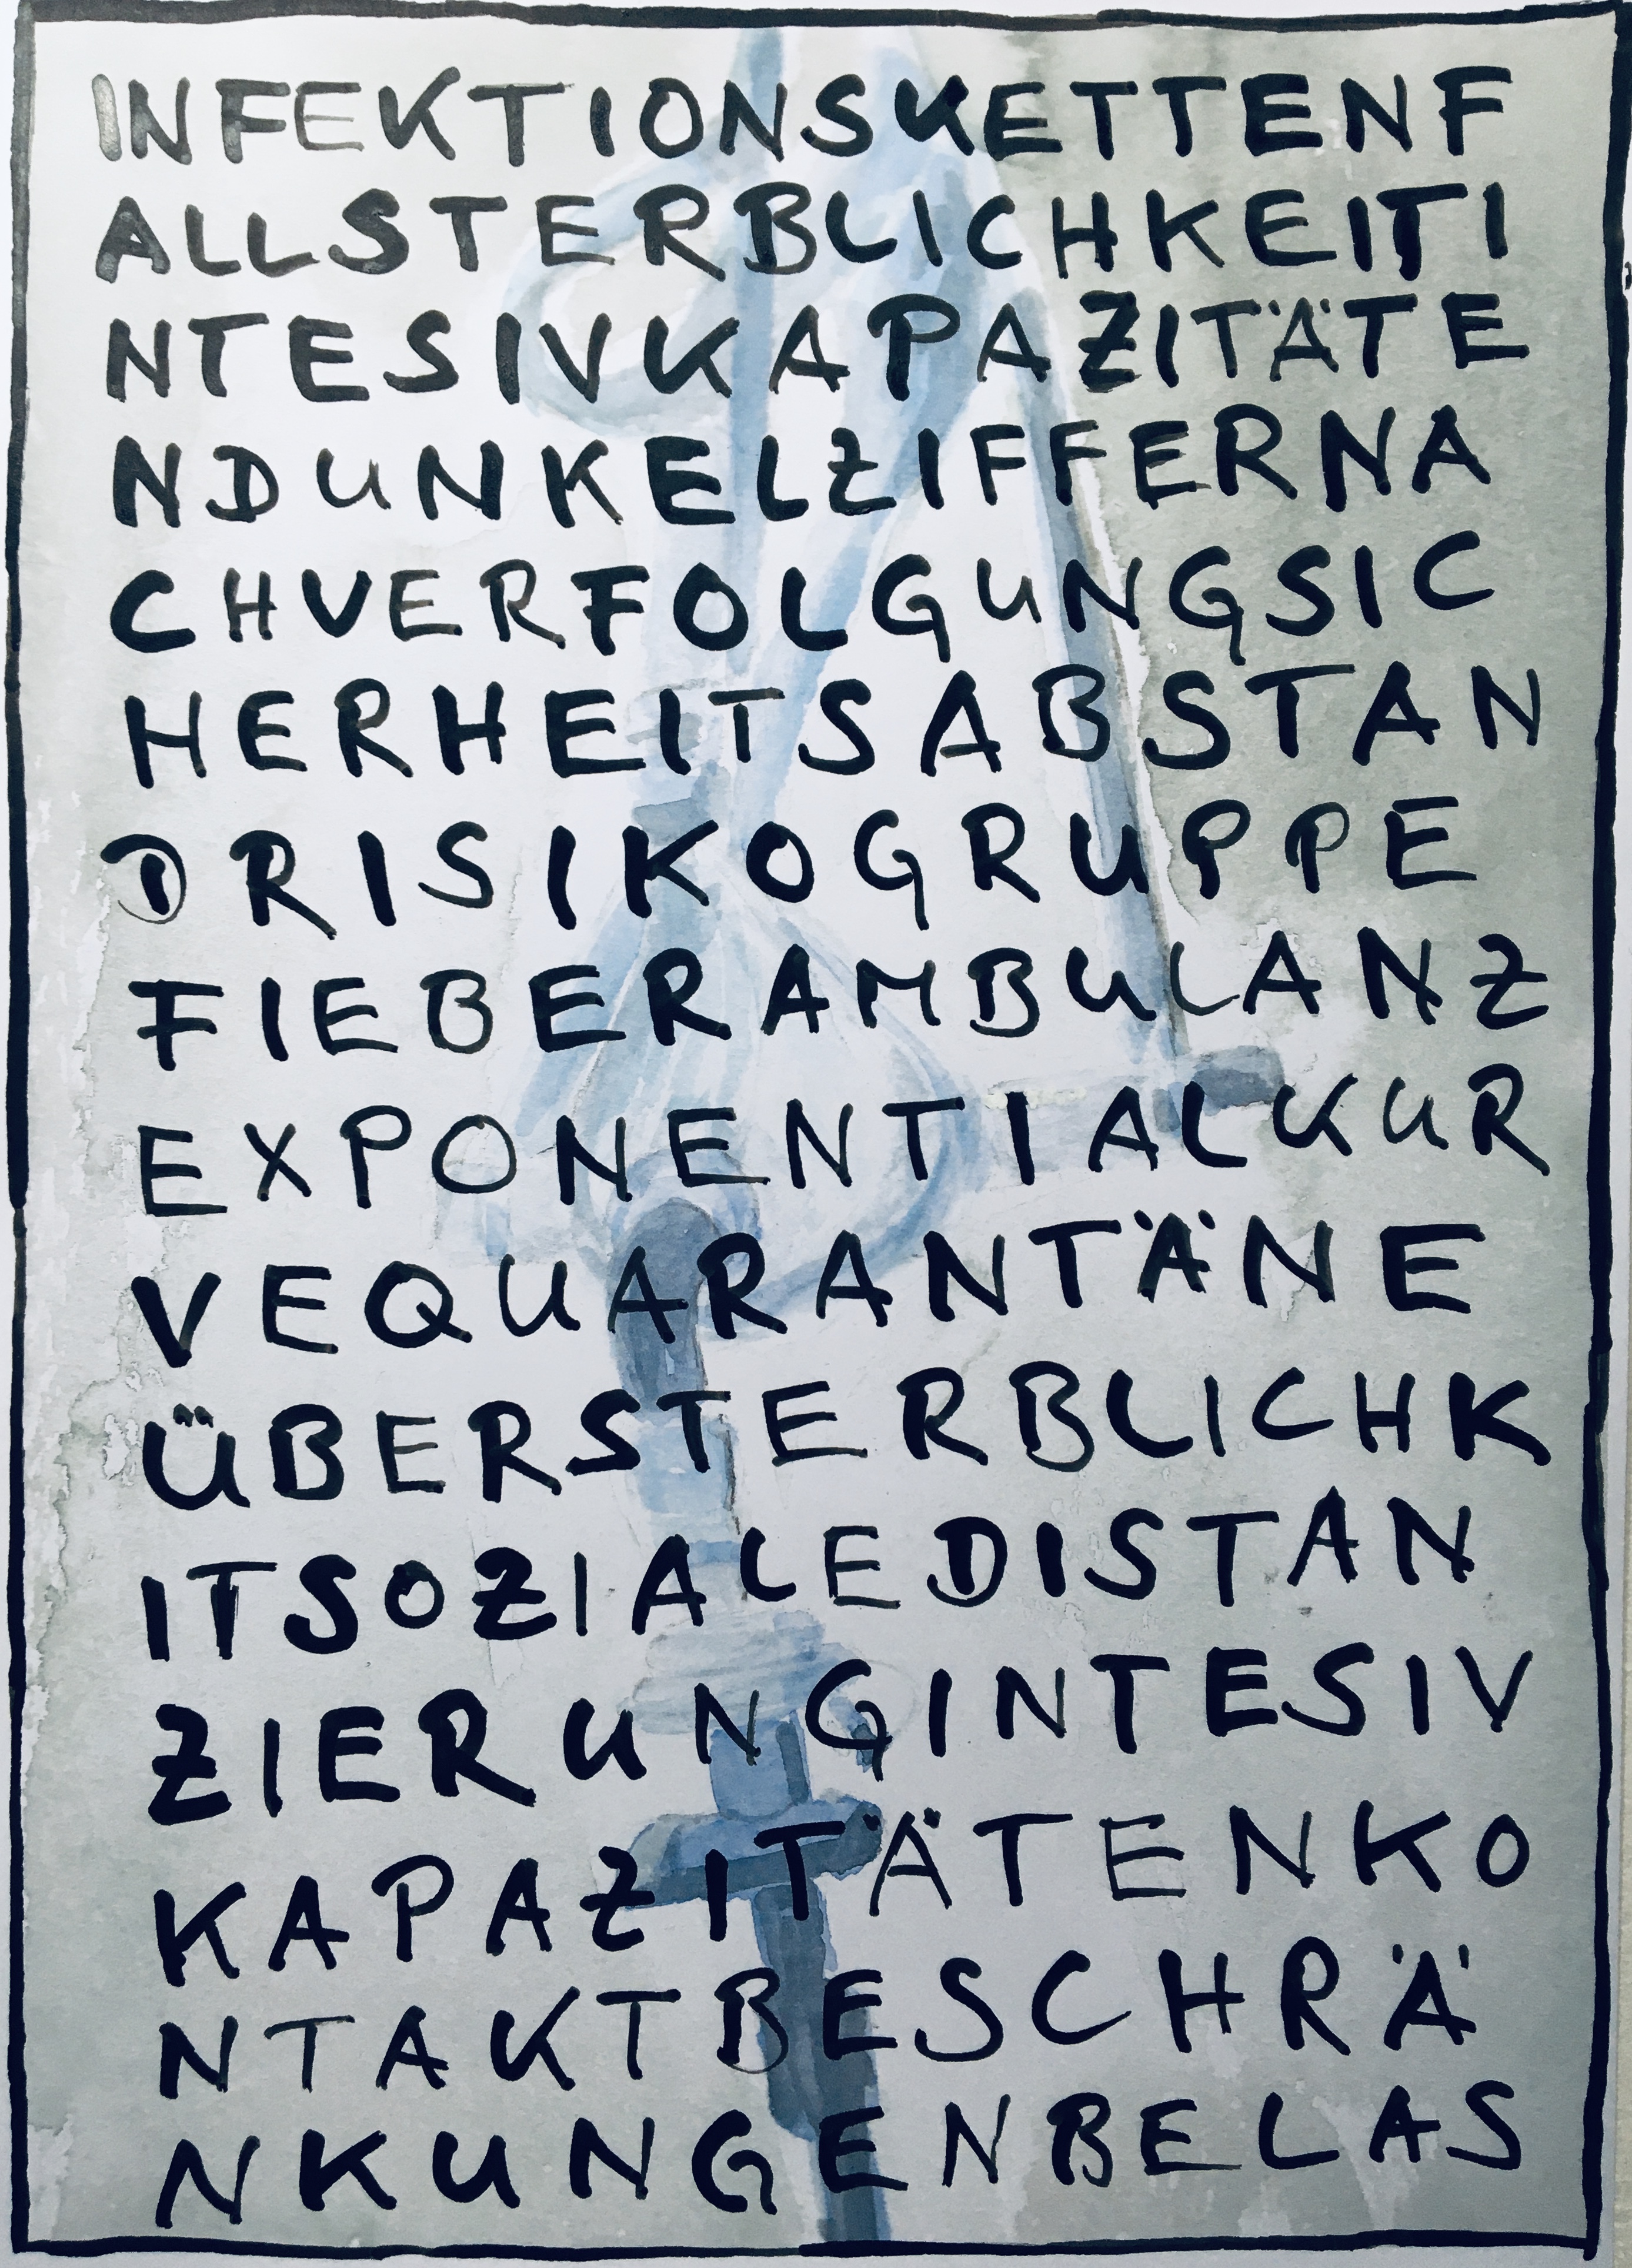 INFEKTIONSKETTENF
ALLSTERBLICHKEITI
NTESIVKAPAZITÄTE
NDUNKELZIFFERNA
CHVERFOLGUNGSIC
HERHEITSABSTAN
DRISIKOGRUPPE
FIEBERAMBULANZ
EXPONENTIALKUR
VEQUARANTÄNE
ÜBERSTERBLICHK
ITSOZIALEDISTAN
ZIERUNGINTESIV
KAPAZITÄTENKO
NTAKTBESCHRÄ
NKUNGENBELAS